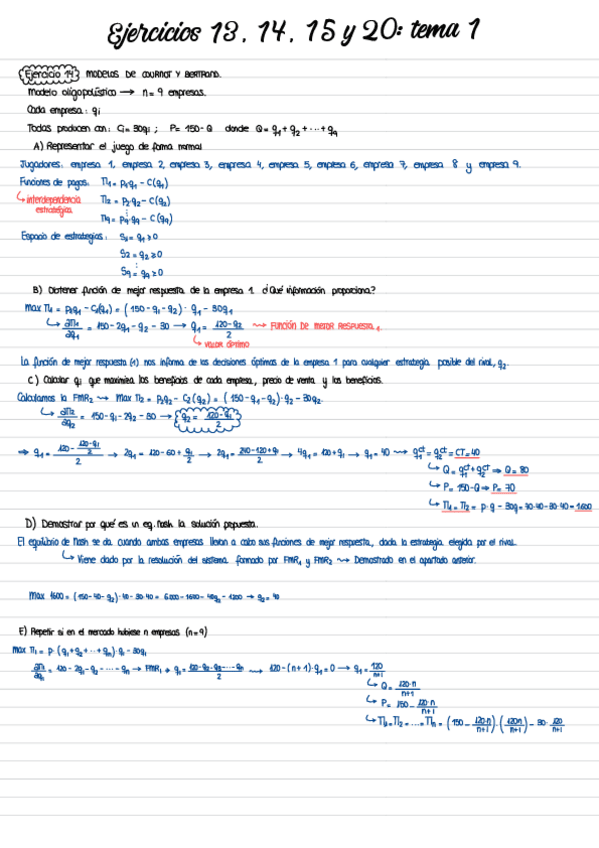 Ejercicios 13, 14, 15 y 20: tema 1
Ejercicio 14: MODELOS DE COURNOT Y BERTRAND.
Modelo oligopolístico → n = 9 empresas.
Cada empresa: qi
Todas producen con: Ci = 30qi ; P = 150 - Q donde Q = q1 + q2 + ... + q9
A) Representar el juego de forma normal
Jugadores: empresa 1, empresa 2, empresa 3, empresa 4, empresa 5, empresa 6, empresa 7, empresa 8 y empresa 9.
Funciones de pagos: Π1 = p1·q1 - C(q1)
↳ interdependencia estratégica Π2 = p2·q2 - C(q2)
⋮
Π9 = p9·q9 - C(q9)
Espacio de estrategias: S1 = q1 ≥ 0
S2 = q2 ≥ 0
⋮
S9 = q9 ≥ 0
B) Obtener función de mejor respuesta de la empresa 1. ¿Qué información proporciona?
max Π1 = p1q1 - C1(q1) = (150 - q1 - q2)· q1 - 30q1
↳ ∂Π1/∂q1 = 150 - 2q1 - q2 - 30 → q1 = (120 - q2)/2 ⇝ FUNCIÓN DE MEJOR RESPUESTA 1
↳ VALOR ÓPTIMO
La función de mejor respuesta (1) nos informa de las decisiones óptimas de la empresa 1 para cualquier estrategia posible del rival, q2.
C) Calcular qi que maximiza los beneficios de cada empresa, precio de venta y los beneficios.
Calculamos la FMR2 ⇝ Max Π2 = P2q2 - C2(q2) = (150 - q1 - q2)·q2 - 30q2
↳ ∂Π2/∂q2 = 150 - q1 - 2q2 - 30 → q2 = (120 - q1)/2
⇒ q1 = (120 - (120 - q1)/2)/2 → 2q1 = 120 - 60 + q1/2 → 2q1 = (240 - 120 + q1)/2 → 4q1 = 120 + q1 → q1 = 40 ⇝ q1ct = q2ct = CT = 40
↳ Q = q1ct + q2ct ⇒ Q = 80
↳ P = 150 - Q ⇒ P = 70
↳ Π1 = Π2 = p·q - 30q = 70·40 - 30·40 = 1600
D) Demostrar por qué es un eq. Nash la solución propuesta.
El equilibrio de Nash se da cuando ambas empresas llevan a cabo sus funciones de mejor respuesta, dada la estrategia elegida por el rival.
↳ Viene dado por la resolución del sistema formado por FMR1 y FMR2 ⇝ Demostrado en el apartado anterior.
max 1600 = (150 - 40 - q2)·40 - 30·40 = 6000 - 1600 - 40q2 - 1200 → q2 = 40
E) Repetir si en el mercado hubiese n empresas (n = 9)
max Π1 = p·(q1 + q2 + ... + qn)·q1 - 30q1
∂Π1/∂q1 = 120 - 2q1 - q2 - ... - qn → FMR1 → q1 = (120 - q2 - q3 - ... - qn)/2 ⇝ 120 - (n+1)·q1 = 0 → q1 = 120/(n+1)
↳ Q = 120·n/(n+1)
↳ P = 150 - 120·n/(n+1)
↳ Π1 = Π2 = ... = Πn = (150 - 120·n/(n+1))·(120n/(n+1)) - 30·120/(n+1)